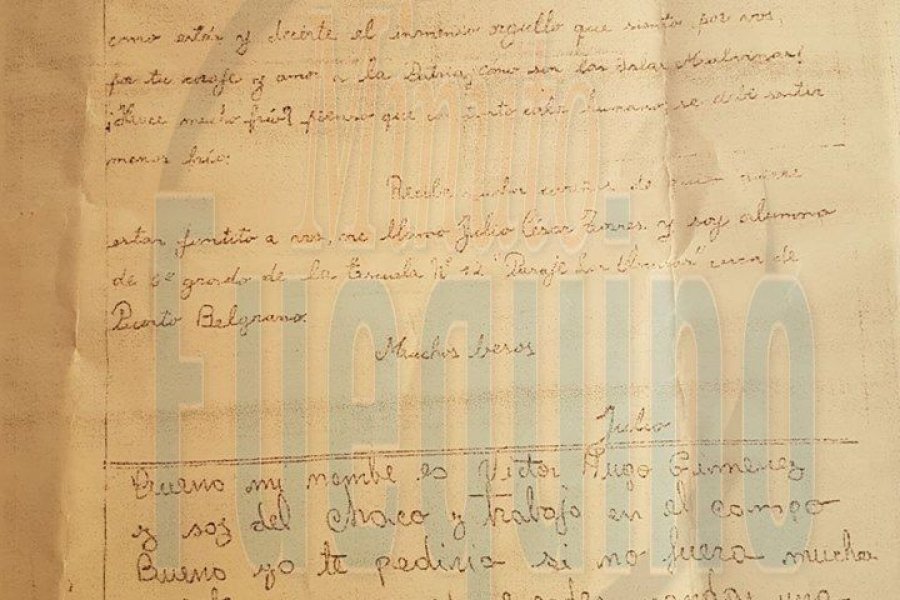 como estás y decirte el inmenso orgullo que siento por vos,
por tu coraje y amor a la Patria, ¿cómo son las Islas Malvinas?
¿Hace mucho frío? pienso que con tanto calor humano, se debe sentir
menos frío.
Recibe cariños de quien quiere
estar juntito a vos, me llamo Julio César Torres y soy alumno
de 6º grado de la Escuela Nº 12 "Paraje" cerca de
Puerto Belgrano.
Muchos besos
Julio
Bueno my nombre es Victor Hugo Gimenez
y soy del chaco y trabajo en el campo
Bueno yo te pediria si no fuera mucha
mandar una
Fueguino